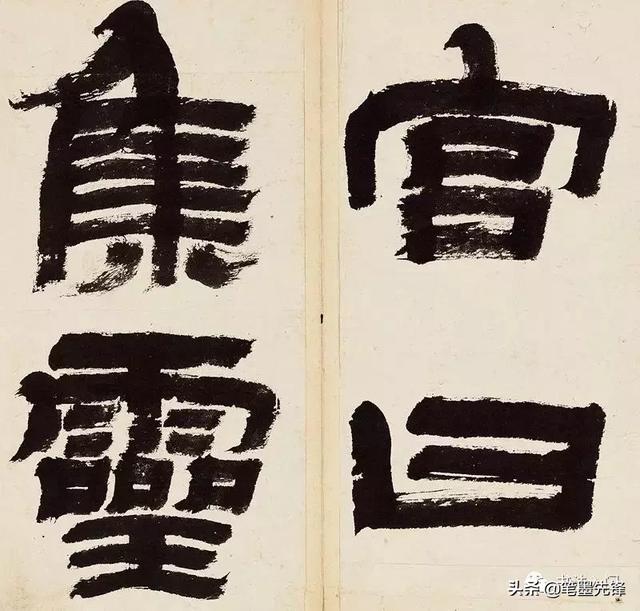 宮曰
集靈
头条 @笔墨先锋